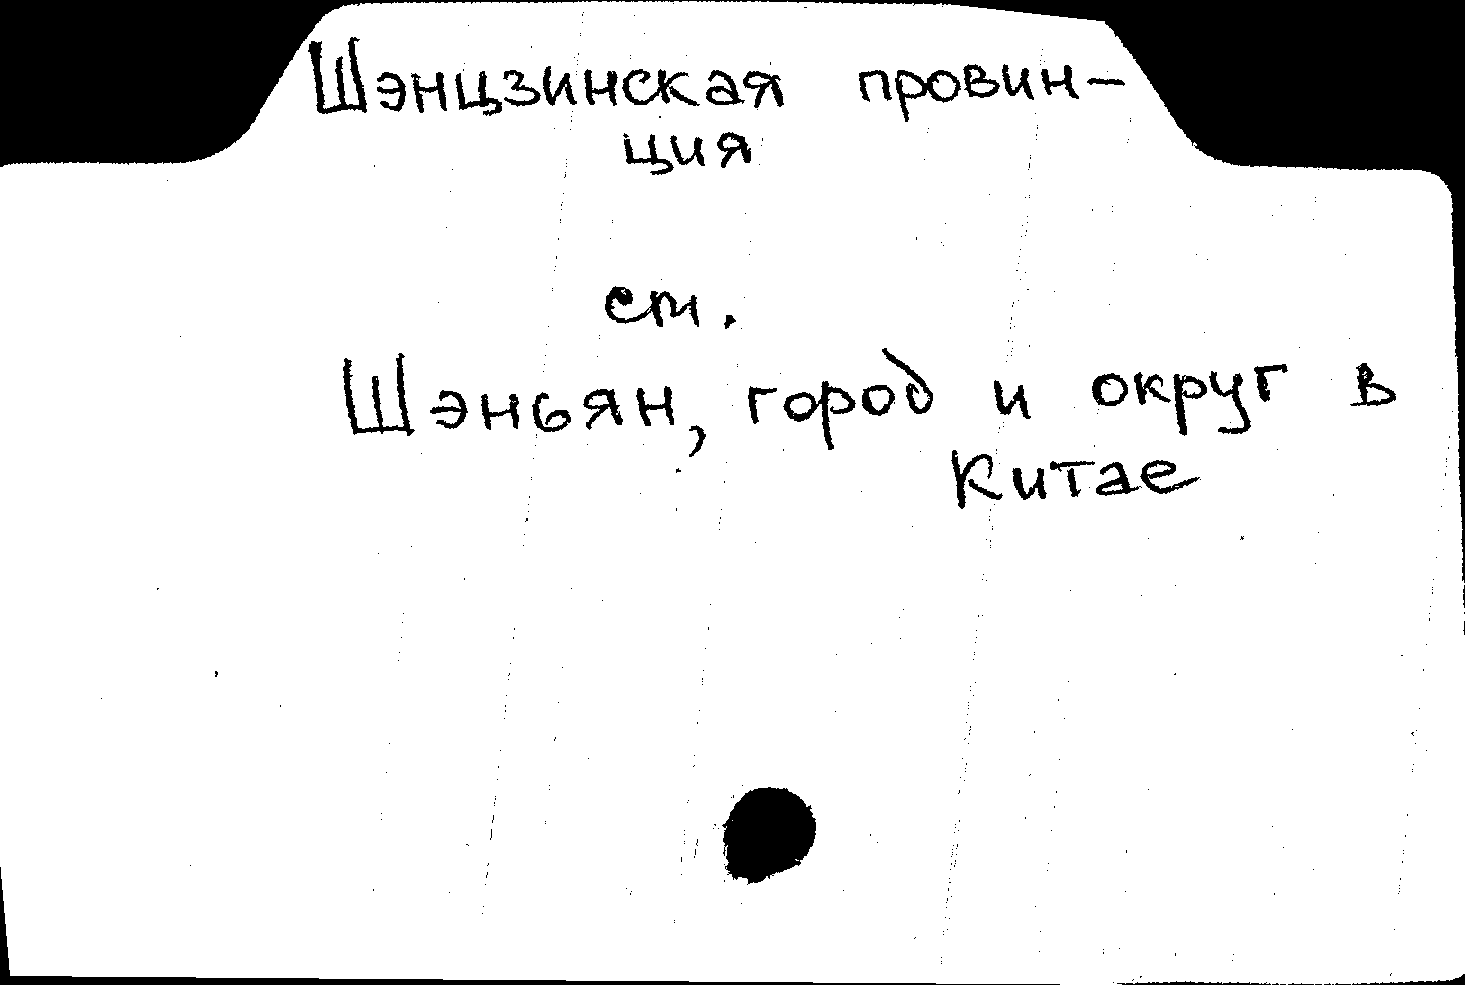 Шэнцзинская провин-
ция
см.
Шэньян, город и округ в
Китае